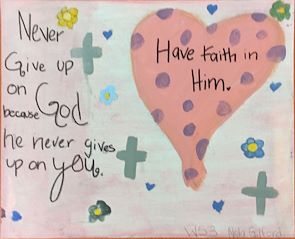 Never
Give up
on
because God
he never gives
up on you.
Have Faith in
Him.
WS3 Nola Gilford